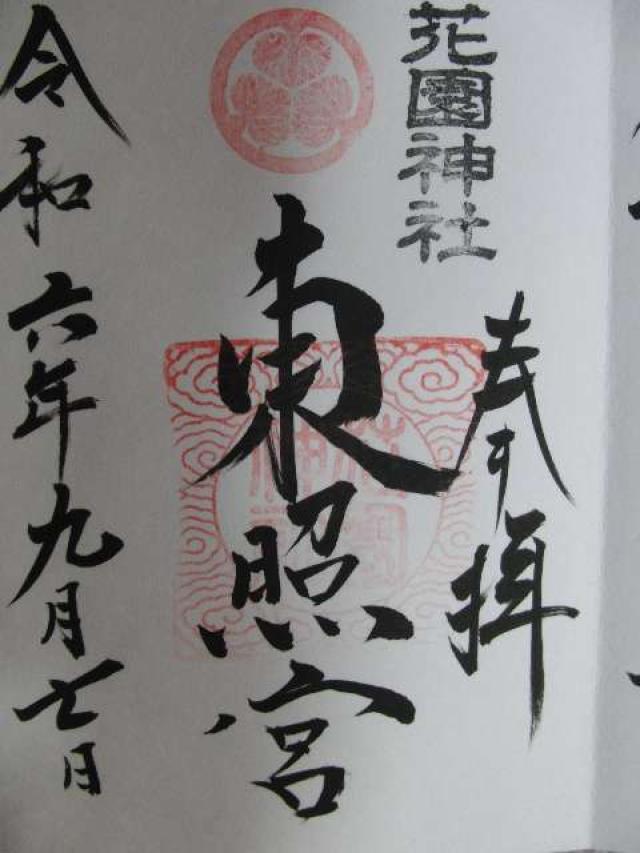 花園神社
奉拝
東照宮
令和六年九月七日